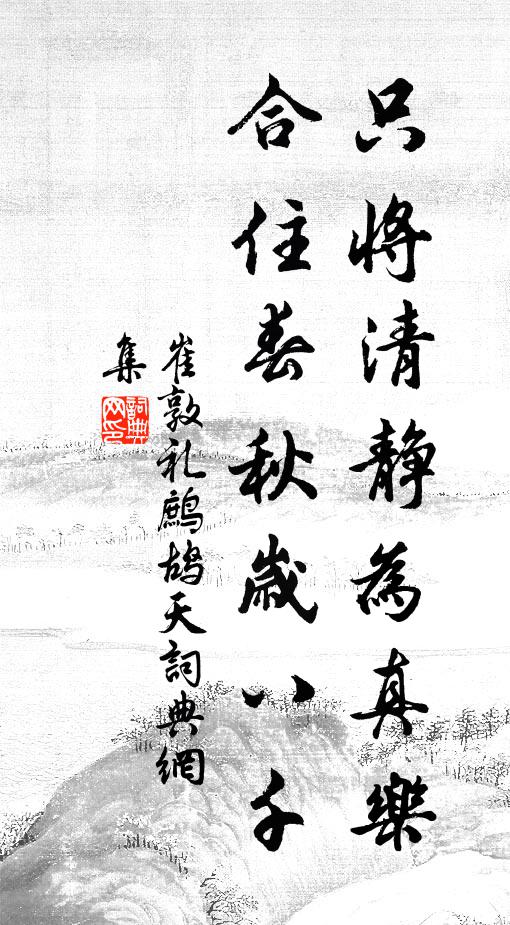 只將清靜為真樂
合住春秋歲八千
崔敦礼鷓鴣天詞典網
集
詞典網印